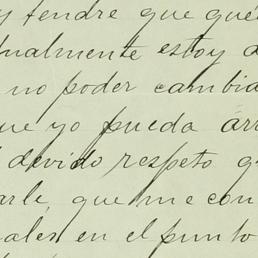 y tendre que qué
ualmente estoy a
no poder cambia
ue yo pueda arr
devido respeto q
arle, que me con
ales en el punto